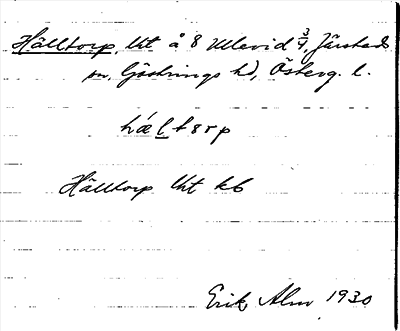 Hälltorp, lht å 8 Ullevid 3/4, Järstads
sn, Göstrings hd, Österg. l.
hæltorp
Hälltorp lht kb
Erik Alm 1930